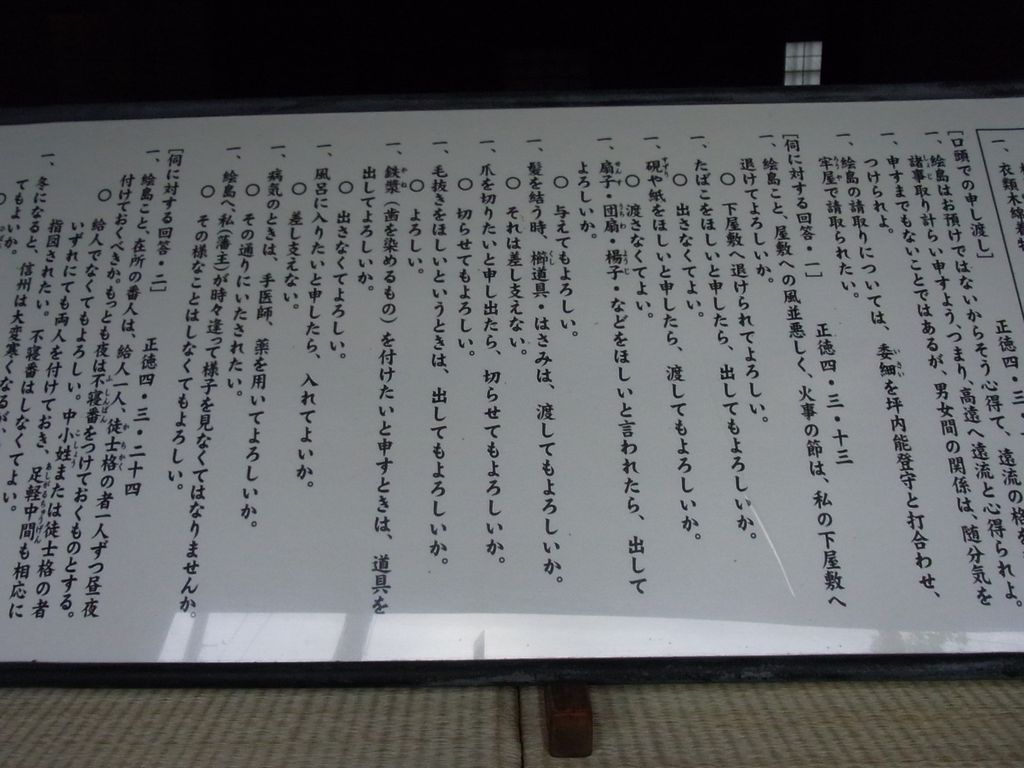 一、衣類木綿着物
［口頭での申し渡し］　正徳四・三・
絵島はお預けではないからそう心得て、遠流の格を
諸事取り計らい申すよう、つまり、高遠へ遠流と心得られよ。
一、申すまでもないことではあるが、男女間の関係は、随分気を
つけられよ。
一、絵島の請取りについては、委細を坪内能登守と打合わせ、
牢屋で請取られたい。
［伺に対する回答・一］　正徳四・三・十三
一、絵島こと、屋敷への風並悪しく、火事の節は、私の下屋敷へ
退けてよろしいか。
○　下屋敷へ退けられてよろしい。
一、たばこをほしいと申したら、出してもよろしいか。
○　出さなくてよい。
一、硯や紙をほしいと申したら、渡してもよろしいか。
○　渡さなくてよい。
一、扇子・団扇・楊子・などをほしいと言われたら、出して
よろしいか。
○　与えてもよろしい。
一、髪を結う時、櫛道具・はさみは、渡してもよろしいか。
○　それは差し支えない。
一、爪を切りたいと申し出たら、切らせてもよろしいか。
○　切らせてもよろしい。
一、毛抜きをほしいというときは、出してもよろしいか。
○　よろしい。
一、鉄漿（歯を染めるもの）を付けたいと申すときは、道具を
出してよろしいか。
○　出さなくてよろしい。
一、風呂に入りたいと申したら、入れてよいか。
○　差し支えない。
一、病気のときは、手医師、薬を用いてよろしいか。
○　その通りにいたされたい。
一、絵島へ、私（藩主）が時々逢って様子を見なくてはなりませんか。
○　その様なことはしなくてもよろしい。
［伺に対する回答・二］　正徳四・三・二十四
一、絵島こと、在所の番人は、給人一人、徒士格の者一人ずつ昼夜
付けておくべきか。もっとも夜は不寝番をつけておくものとする。
○　給人でなくてもよろしい。中小姓または徒士格の者
いずれにても両人を付けておき、足軽中間も相応に
指図されたい。不寝番はしなくてよい。
一、冬になると、信州は大変寒くなるが、
てもよいか。